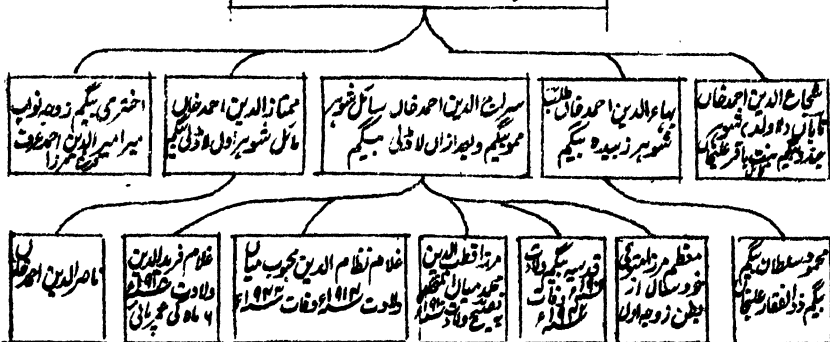 شجاع الدین احمد خاں
تاباں (لاولد) شوہر
بہاء الدین احمد خاں طالب
شوہر زبیدہ بیگم
سراج الدین احمد خاں سائل شوہر
ممو بیگم و بعد ازاں لاڈلی بیگم
ممتاز الدین احمد خاں
مائل شوہر اول لاڈلی بیگم
اختری بیگم زوجہ نواب
میر امیر الدین احمد عرف
محمود سلطان بیگم
بیگم ذوالفقار علیخاں
معظم مرزا متوفی
خورد سال از
بطن زوجہ اول
قدسیہ بیگم ولادت
وفات
مرزا قطب الدین
غلام نظام الدین محبوب میاں
ولادت ۱۹۱۲ء وفات ۱۹۲۳ء
غلام فرید الدین
ولادت
۶ ماہ کی عمر پائی
ناصر الدین احمد خاں